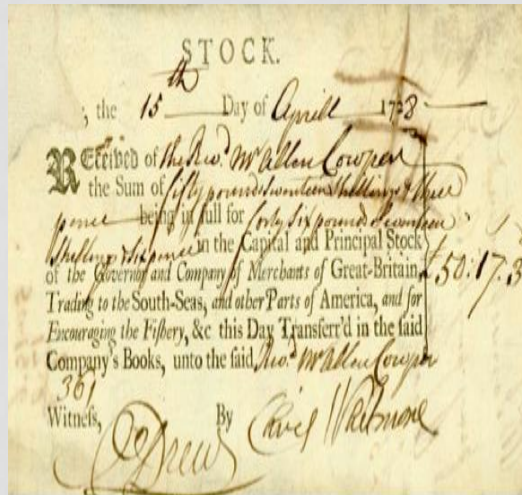 STOCK.
; the 15th Day of Aprill 1728
REceived of the Revd. Mr Allen Cowper
the Sum of fifty pounds Seventeen Shillings & three
pence being in full for forty Six pounds Seventeen
Shillings & Six pence in the Capital and Principal Stock
of the Governor and Company of Merchants of Great-Britain, £50:17.3
Trading to the South-Seas, and other Parts of America, and for
Encouraging the Fishery, &c this Day Transferr'd in the said
Company's Books, unto the said Revd. Mr Allen Cowper
361
Witness, By
Drew Whitmore